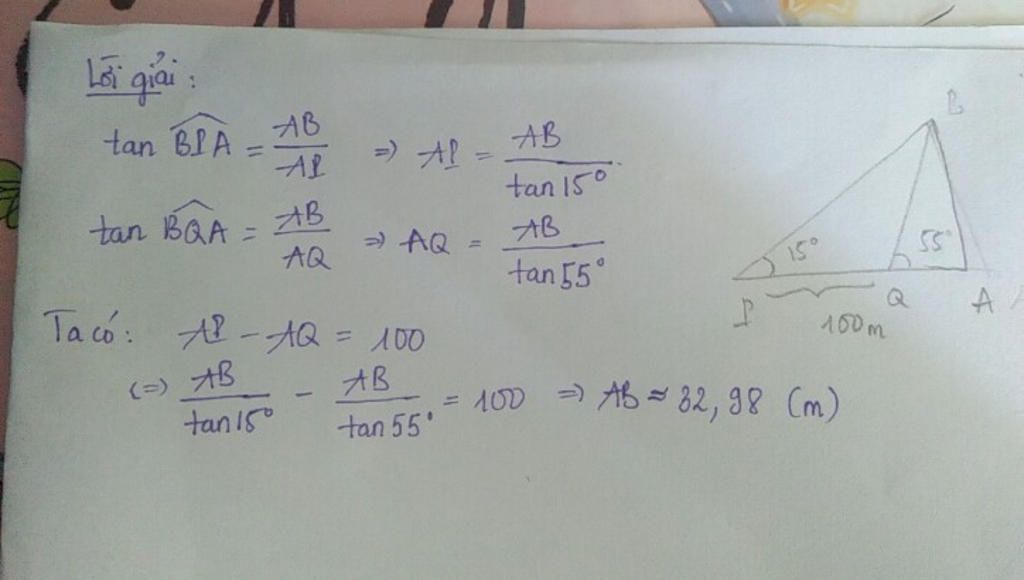 Lời giải:
tan BPA = AB/AP => AP = AB/tan15°
tan BQA = AB/AQ => AQ = AB/tan55°
Ta có: AP - AQ = 100
(=>) AB/tan15° - AB/tan55° = 100 => AB ≈ 32,98 (m)
B
15°
55°
P
Q
A
100m